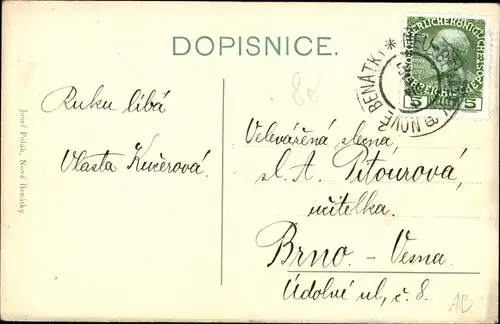 DOPISNICE.
Ruku líbá
Vlasta Kučerová.
Josef Polák, Nové Benátky
80
Velevážená slečna
sl. A. Pitourová,
učitelka.
Brno - Vesna
Údolní ul, č. 8.
NOVÉ BENÁTKY * NEU-
5 HELLER 5
AB